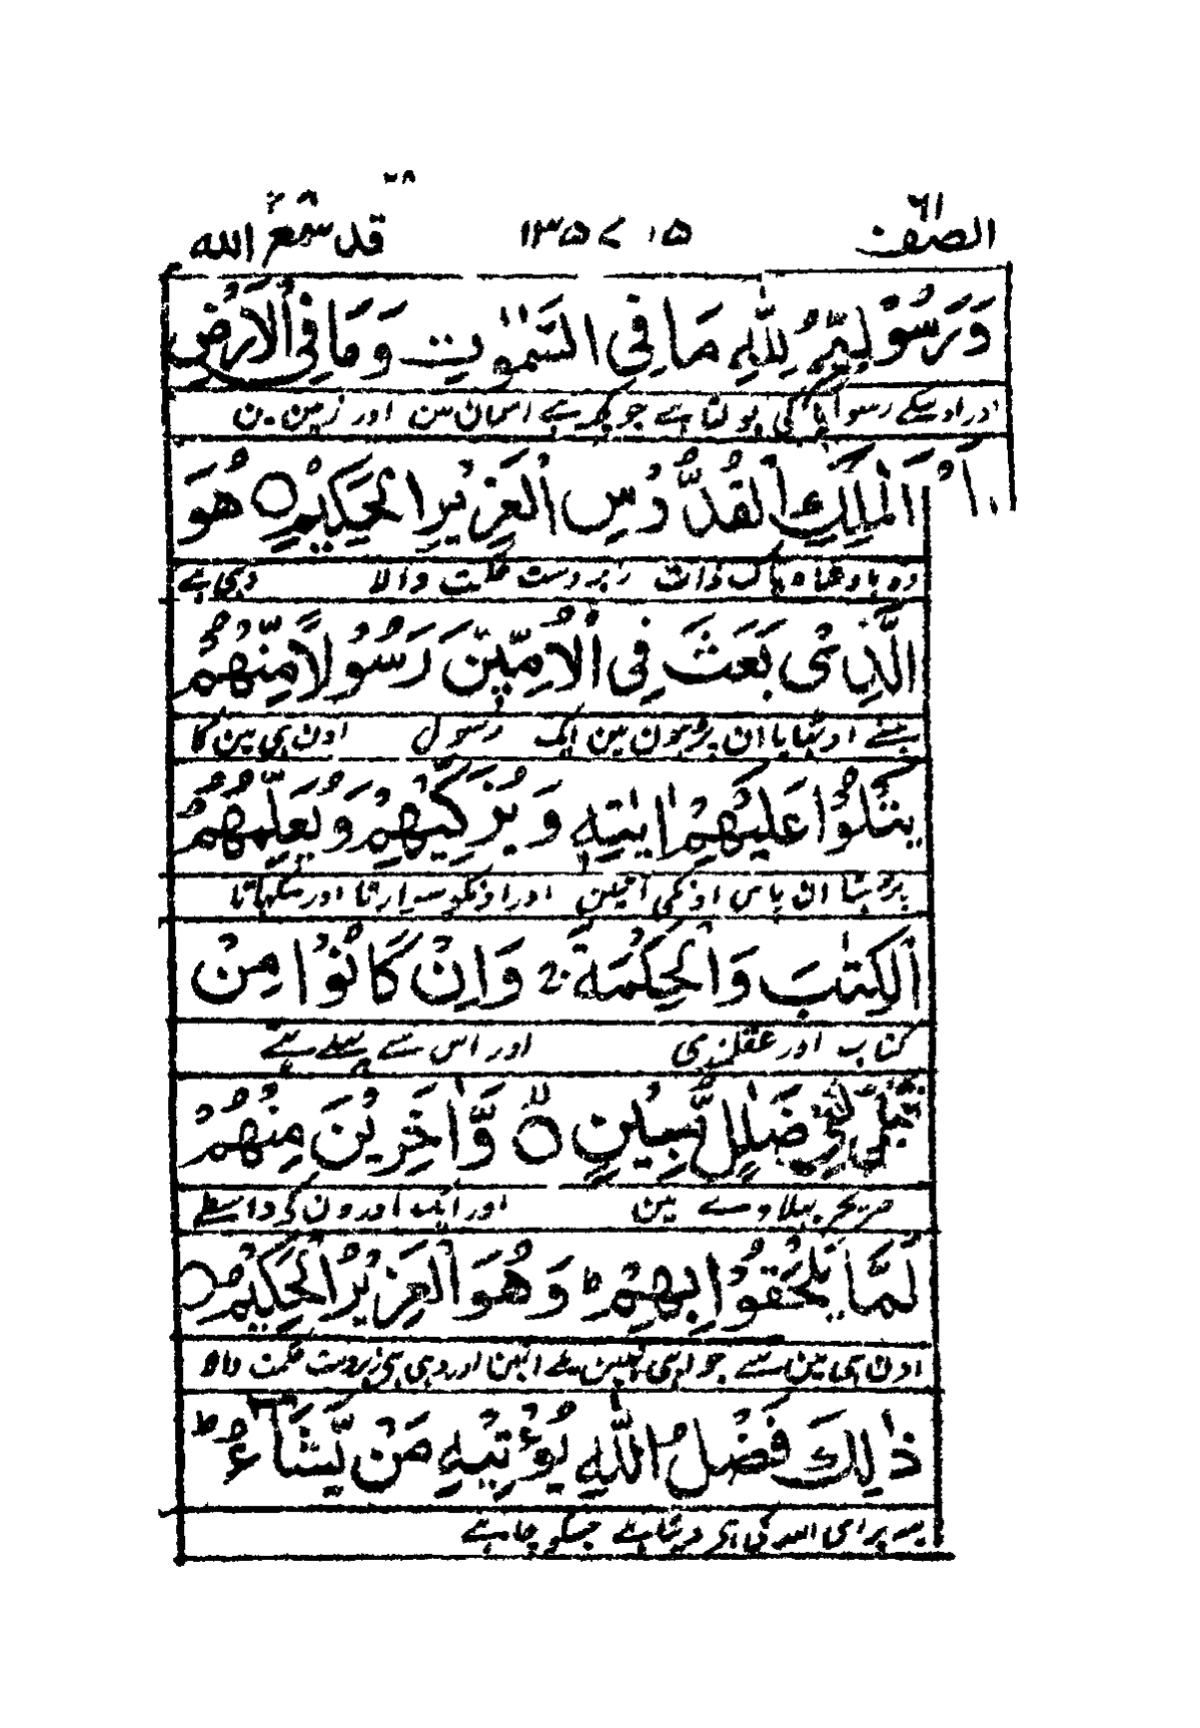 ٢٨
الصف ٦١ ١٣٥٧ ١٥ قد سمع الله
وَرَسُوْلِهٖ لِلّٰهِ مَا فِي السَّمٰوٰتِ وَمَا فِي الْاَرْضِ
اور اوسکے رسول کی بولتا ہے جو کچھ ہے اسمان مین اور زمین مین
الْمَلِكِ الْقُدُّوْسِ الْعَزِيْزِ الْحَكِيْمِ ○ هُوَ
وہ بادشاہ پاک ذات زبردست حکمت والا وہی ہے
الَّذِيْ بَعَثَ فِي الْاُمِّيّٖنَ رَسُوْلًا مِّنْهُمْ
جسنے اوٹھایا ان پڑہون مین ایک رسول اون ہی مین کا
يَتْلُوْا عَلَيْهِمْ اٰيٰتِهٖ وَيُزَكِّيْهِمْ وَيُعَلِّمُهُمُ
پڑہتا ان پاس اونکی آیتین اور اونکو سوارتا اور سکہاتا
الْكِتٰبَ وَالْحِكْمَةَ وَاِنْ كَانُوْا مِنْ
کتاب اور عقلمندی اور اس سے پہلے تہے
قَبْلُ لَفِيْ ضَلٰلٍ مُّبِيْنٍ ○ وَّاٰخَرِيْنَ مِنْهُمْ
صریح بہلاوے مین اور ایک اورون کے واسطے
لَمَّا يَلْحَقُوْا بِهِمْ ط وَهُوَ الْعَزِيْزُ الْحَكِيْمُ ○
اون ہی مین سے جو ابہی نہین ملے انہین اور وہی ہی زبردست حکمت والا
ذٰلِكَ فَضْلُ اللّٰهِ يُؤْتِيْهِ مَنْ يَّشَآءُ ط
یہ برائی اللہ کی ہی دیتا ہے جسکو چاہے